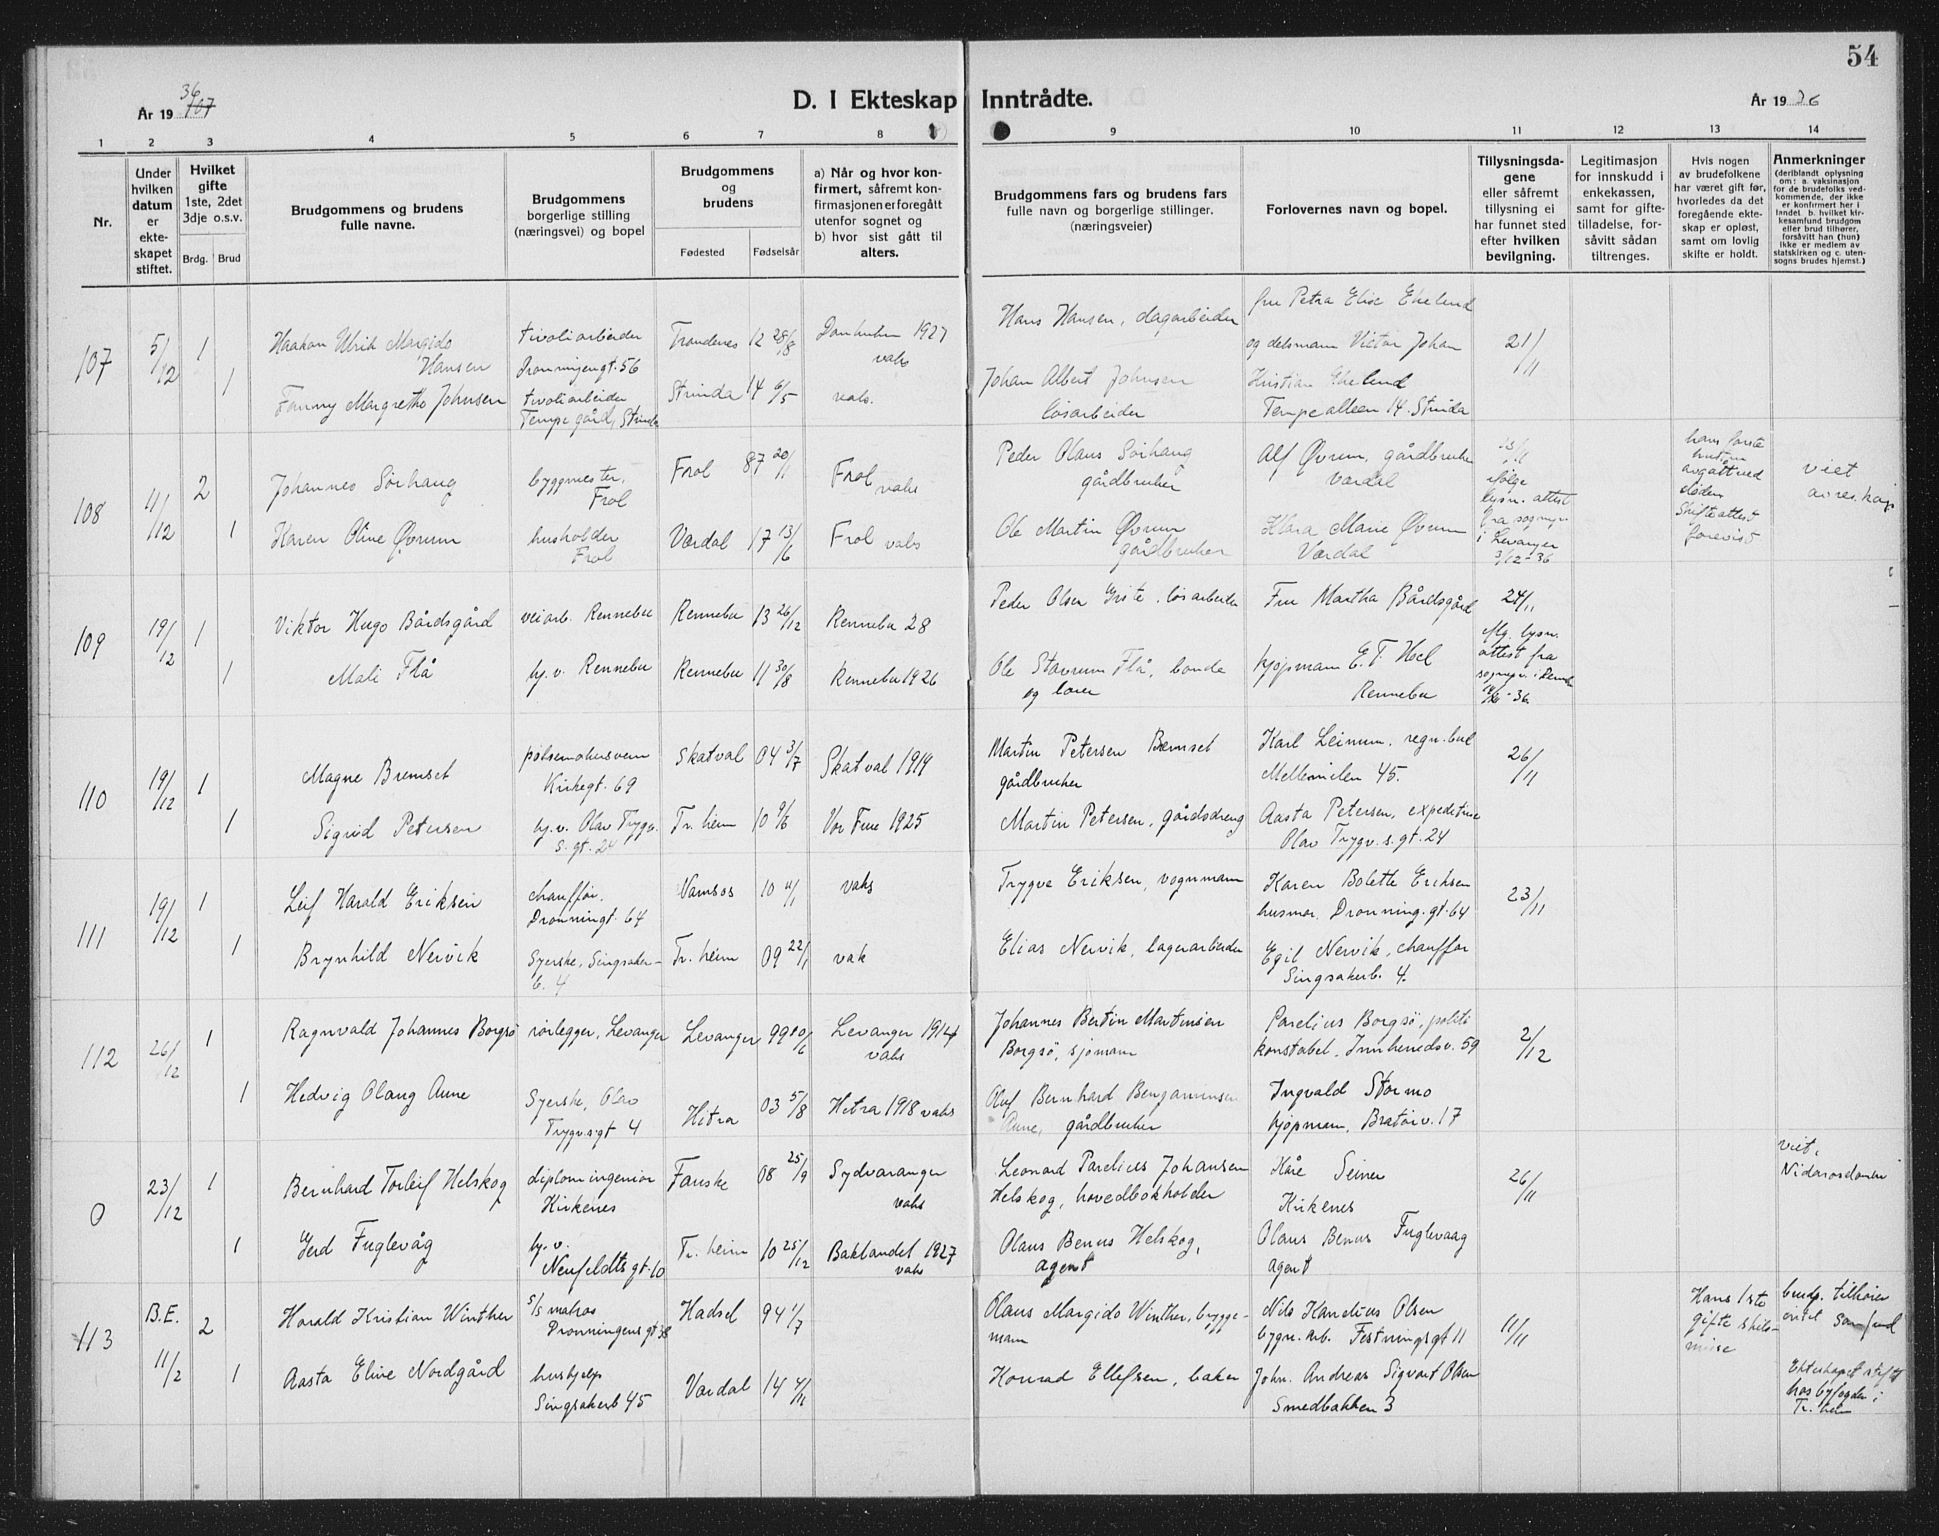 54
36
År 19 107
D. I Ekteskap Inntrådte.
År 19 36
1 2 3 4 5 6 7 8 9 10 11 12 13 14
Nr.
Under
hvilken
datum
er
ekte-
skapet
stiftet.
Hvilket
gifte
1ste, 2det
3dje o.s.v.
Brdg. Brud
Brudgommens og brudens
fulle navne.
Brudgommens
borgerlige stilling
(næringsvei) og bopel
Brudgommens
og
brudens
Fødested Fødselsår
a) Når og hvor kon-
firmert, såfremt kon-
firmasjonen er foregått
utenfor sognet og
b) hvor sist gått til
alters.
Brudgommens fars og brudens fars
fulle navn og borgerlige stillinger.
(næringsveier)
Forlovernes navn og bopel.
Tillysningsda-
gene
eller såfremt
tillysning ei
har funnet sted
efter hvilken
bevilgning.
Legitimasjon
for innskudd i
enkekassen,
samt for gifte-
tilladelse, for-
såvitt sådan
tiltrenges.
Hvis nogen
av brudefolkene
har været gift før,
hvorledes da det
foregående ekte-
skap er opløst,
samt om lovlig
skifte er holdt.
Anmerkninger
(deriblandt oplysning
om: a. vaksinasjon
for de brudefolks ved-
kommende, der ikke
er konfirmert her i
landet b. hvilket kir-
kesamfund brudgom
eller brud tilhører,
forsåvitt han (hun)
ikke er medlem av
statskirken og c. uten-
sogns brudes hjemst.)
107 5/12 1
Haakon Ulrik Margido
Hansen
tivoliarbeider
Dronningengt. 56
Trondenes 12 28/8
Domkirken 1927
vaks
Hans Hansen, dagarbeider
fru Petra Elise Ekelund
og delsmann Victor Johan
21/11
1
Fanny Margrethe Johnsen
tivoliarbeider
Tempe gård, Strinda
Strinda 14 6/5
vaks.
Johan Albert Johnsen
løsarbeider
Kristian Ekelund
Tempealleen 14. Strinda
108 4/12 2
Johannes Sörhaug
byggmester,
Frol
Frol 87 20/11
Frol vaks
Peder Olaus Sörhaug
gårdbruker
Alf Øvrum, gårdbruker
Værdal
ifølge
lysn. attest
fra sognepr.
i Levanger
3/12-36
hans første
hustru
avgått ved
døden
Skifteattest
forevist
viet
1
Karen Oline Øvrum
husholder
Frol
Værdal 17 13/6
Frol vaks
Ole Martin Øvrum
gårdbruker
Klara Marie Øvrum
Værdal
109 19/12 1
Viktor Hugo Bårdsgård
veiarb. Rennebu
Rennebu 13 26/12
Rennebu 28
Peder Olsen Griste, løsarbeider
Fru Martha Bårdsgård
24/11
iflg. lysn.
attest fra
sognepr. i Rennebu
1
Mali Flå
hj. v. Rennebu
Rennebu 11 30/8
Rennebu 1926
Ole Stavrum Flå, bonde
og lærer
kjøpmann E. T. Hoel
Rennebu
110 19/12 1
Magne Bremset
pølsemakersvenn
Kirkegt. 69
Skatval 04 3/7
Skatval 1919
Martin Petersen Bremset
gårdbruker
Karl Leinum, regn. bul
Mellemilen 45.
26/11
1
Sigrid Petersen
hj. v. Olav Trygv.
s. gt. 24
Tr. heim 10 9/6
Vor Frue 1925
Martin Petersen, gårdsdreng
Aasta Petersen, expeditrise
Olav Trygv. s. gt. 24
111 19/12 1
Leif Harald Eriksen
chauffør.
Dronningt. 64
Namsos 10 4/1
vaks
Trygve Eriksen, vognmann
Karen Bolette Eriksen
husmor, Dronning. gt. 64
23/11
1
Brynhild Nervik
Syerske, Singsaker-
b. 4
Tr. heim 09 22/1
vak
Elias Nervik, lagerarbeider
Egil Nervik, chauffør
Singsakerb. 4.
112 26/12 1
Ragnvald Johannes Borgsø
rørlegger, Levanger
Levanger 99 10/6
Levanger 1914
vaks
Johannes Bertin Martinsen
Borgsø, sjømann
Parelius Borgsø, politi
konstabel, Innherredsv. 59
2/12
1
Hedvig Olaug Aune
Syerske, Olav
Trygv.s.gt 4
Hitra 03 5/8
Hitra 1918 vaks
Oluf Bernhard Benjaminsen
Aune, gårdbruker
Ingvald Stormo
kjøpmann, Bratørv. 17
0 23/12 1
Bernhard Torleif Helskog
diplomingeniør
Kirkenes
Fauske 08 25/9
Sydvaranger
vaks
Leonard Parelius Johansen
Helskog, hovedbokholder
Kåre Seiner
Kirkenes
26/11
viet i
Nidarosdomen
1
Gerd Fuglevåg
hj. v.
Neufeldts gt. 10
Tr. heim 10 25/12
Baklandet 1927
vaks
Olaus Benus Helskog,
agent
Olaus Benus Fuglevaag
agent
113 B.E.
11/2 2
Harald Kristian Winther
s/s matros
Dronningens gt 38
Hadsel 94 1/7
Olaus Margido Winther, brygge-
mann
Nils Kandius Olsen
bygn. arb. Festningsgt 11
11/11
Hans 1ste
gifte skils-
misse
brudg. tilhører
intet samfund
1
Aasta Eline Nordgård
hushjelp
Singsakerb 45
Værdal 14 4/11
Konrad Ellefsen, baker
John. Andreas Sigvart Olsen
Smedbakken 3
Ekteskapet stiftet
hos byfogden i
Tr. heim